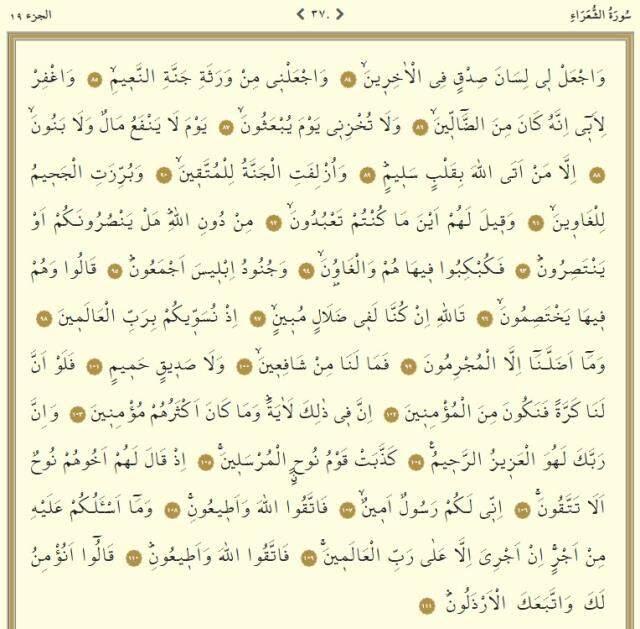 سُورَةُ الشُّعَرَاءِ ٣٧٠ الجزء ١٩
وَاجْعَلْ لِى لِسَانَ صِدْقٍ فِى الْاٰخِرِينَۙ ٨٤ وَاجْعَلْنِى مِنْ وَرَثَةِ جَنَّةِ النَّعِيمِۙ ٨٥ وَاغْفِرْ
لِاَبِٓى اِنَّهُ كَانَ مِنَ الضَّٓالِّينَۙ ٨٦ وَلَا تُخْزِنِى يَوْمَ يُبْعَثُونَۙ ٨٧ يَوْمَ لَا يَنْفَعُ مَالٌ وَلَا بَنُونَۙ
٨٨ اِلَّا مَنْ اَتَى اللّٰهَ بِقَلْبٍ سَلِيمٍۜ ٨٩ وَاُزْلِفَتِ الْجَنَّةُ لِلْمُتَّقِينَۙ ٩٠ وَبُرِّزَتِ الْجَحِيمُ
لِلْغَاوِينَۙ ٩١ وَقِيلَ لَهُمْ اَيْنَ مَا كُنْتُمْ تَعْبُدُونَۙ ٩٢ مِنْ دُونِ اللّٰهِۜ هَلْ يَنْصُرُونَكُمْ اَوْ
يَنْتَصِرُونَۜ ٩٣ فَكُبْكِبُوا فِيهَا هُمْ وَالْغَاوُ۫نَۙ ٩٤ وَجُنُودُ اِبْلِيسَ اَجْمَعُونَۜ ٩٥ قَالُوا وَهُمْ
فِيهَا يَخْتَصِمُونَۙ ٩٦ تَاللّٰهِ اِنْ كُنَّا لَفِى ضَلَالٍ مُبِينٍۙ ٩٧ اِذْ نُسَوِّيكُمْ بِرَبِّ الْعَالَمِينَ ٩٨
وَمَٓا اَضَلَّنَٓا اِلَّا الْمُجْرِمُونَ ٩٩ فَمَا لَنَا مِنْ شَافِعِينَۙ ١٠٠ وَلَا صَدِيقٍ حَمِيمٍ ١٠١ فَلَوْ اَنَّ
لَنَا كَرَّةً فَنَكُونَ مِنَ الْمُؤْمِنِينَ ١٠٢ اِنَّ فِى ذٰلِكَ لَاٰيَةًۜ وَمَا كَانَ اَكْثَرُهُمْ مُؤْمِنِينَ ١٠٣ وَاِنَّ
رَبَّكَ لَهُوَ الْعَزِيزُ الرَّحِيمُ۟ ١٠٤ كَذَّبَتْ قَوْمُ نُوحٍۨ الْمُرْسَلِينَۚ ١٠٥ اِذْ قَالَ لَهُمْ اَخُوهُمْ نُوحٌ
اَلَا تَتَّقُونَۚ ١٠٦ اِنِّى لَكُمْ رَسُولٌ اَمِينٌۙ ١٠٧ فَاتَّقُوا اللّٰهَ وَاَطِيعُونِۚ ١٠٨ وَمَٓا اَسْـَٔلُكُمْ عَلَيْهِ
مِنْ اَجْرٍۚ اِنْ اَجْرِىَ اِلَّا عَلٰى رَبِّ الْعَالَمِينَۚ ١٠٩ فَاتَّقُوا اللّٰهَ وَاَطِيعُونِۜ ١١٠ قَالُٓوا اَنُؤْمِنُ
لَكَ وَاتَّبَعَكَ الْاَرْذَلُونَۜ ١١١